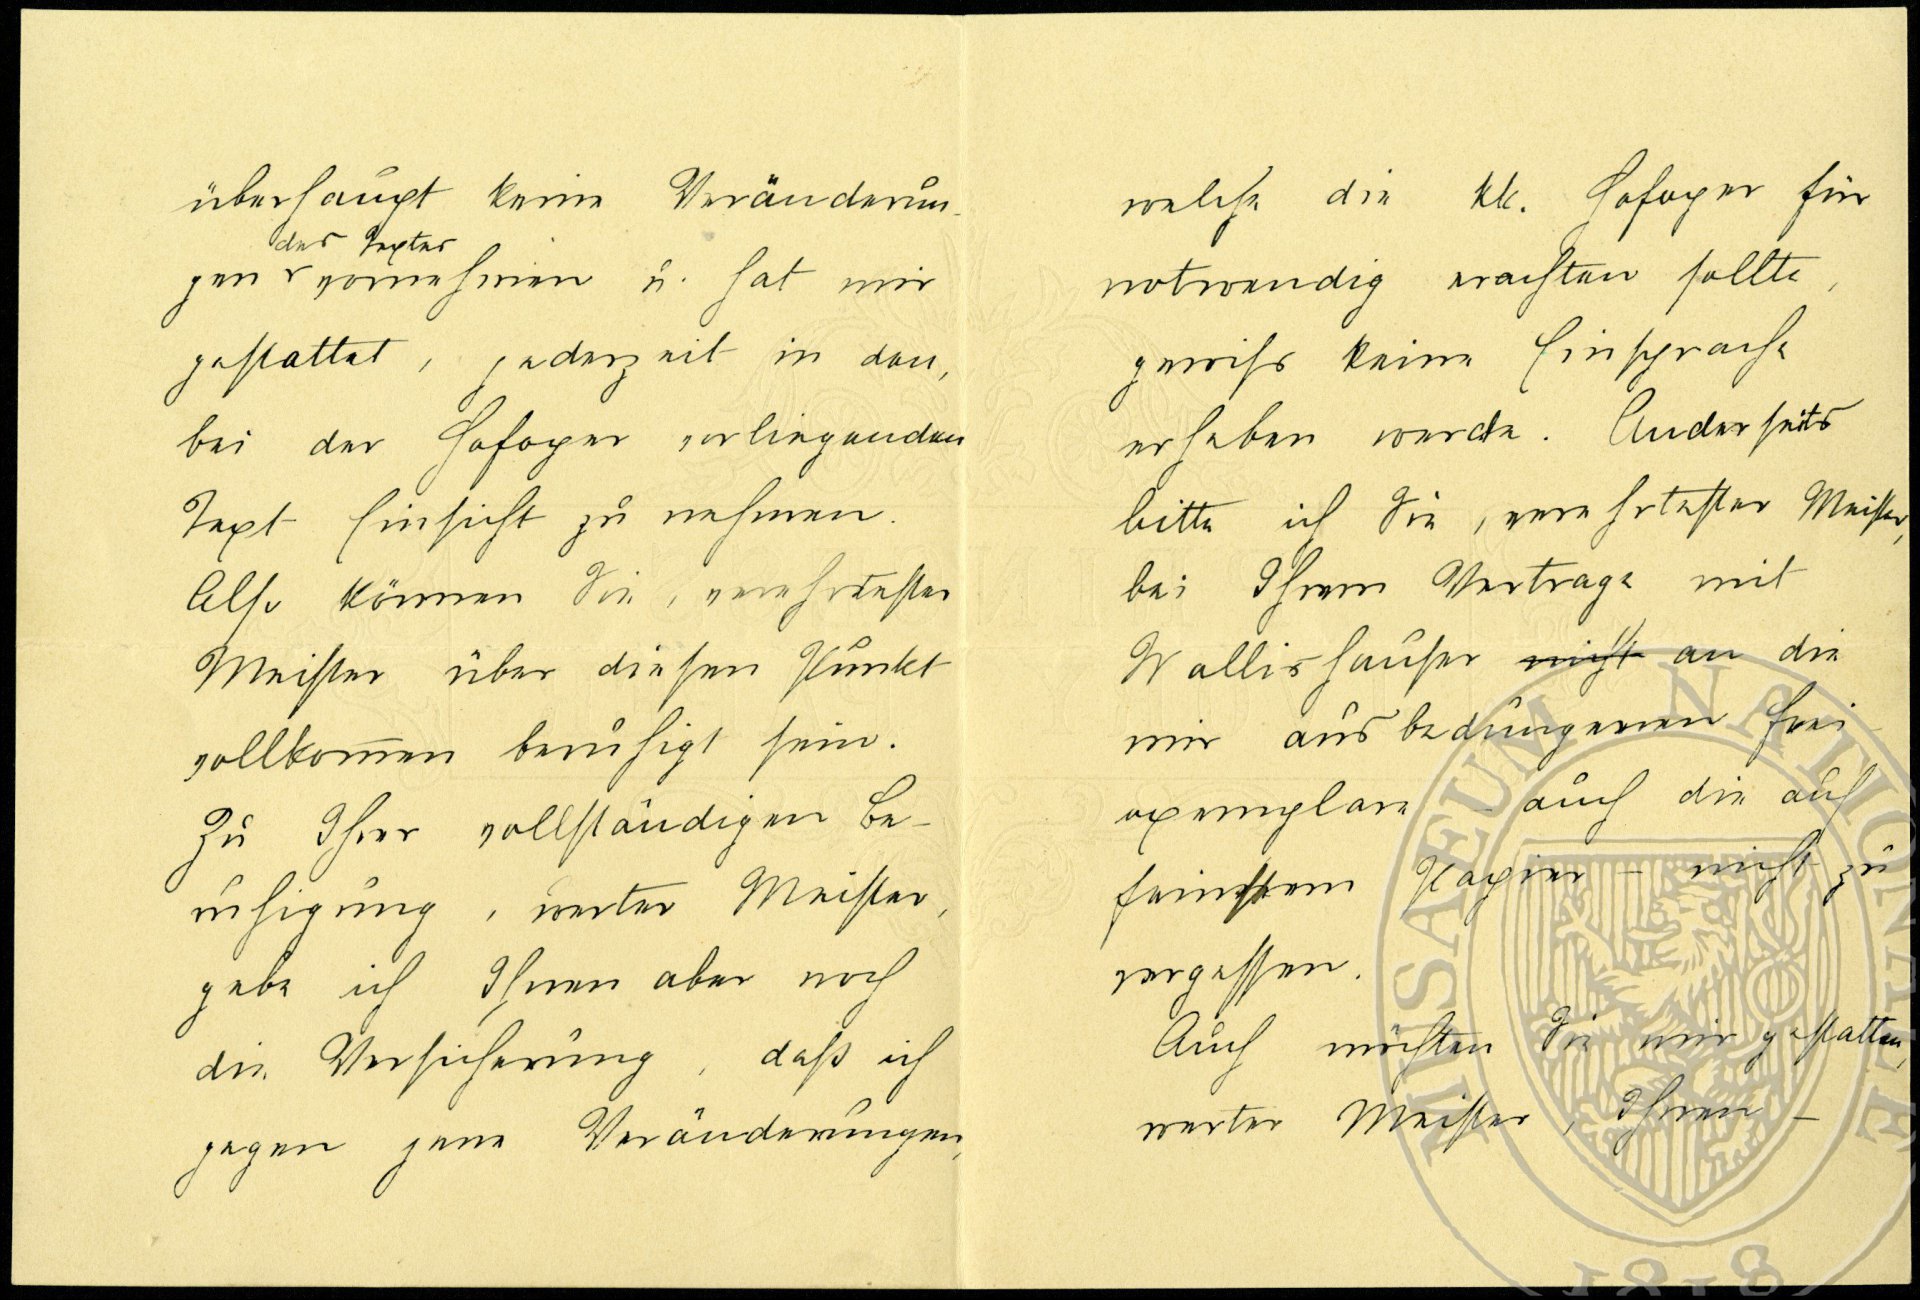 überhaupt keine Veränderun-
des Textes
gen vornehmen u. hat mir
gestattet, jederzeit in den,
bei der Hofoper vorliegenden
Text Einsicht zu nehmen.
Also können Sie, verehrtester
Meister über diesen Punkt
vollkom̅en beruhigt sein.
Zu Ihrer vollständigen Be-
ruhigung, werter Meister,
gebe ich Ihnen aber noch
die Versicherung, daß ich
gegen jene Veränderungen,
welche die kk. Hofoper für
notwendig erachten sollte,
gewiss keine Einsprache
erheben werde. Anderseits
bitte ich Sie, verehrtester Meister,
bei Ihrem Vertrage mit
Wallishauser nicht an die
mir ausbedungenen Frei-
exemplare – auch die auf
feinstem Papier – nicht zu
vergessen.
Auch möchten Sie mir gestatten,
werter Meister, Ihnen –
MUSAEUM NATIONALE
1818